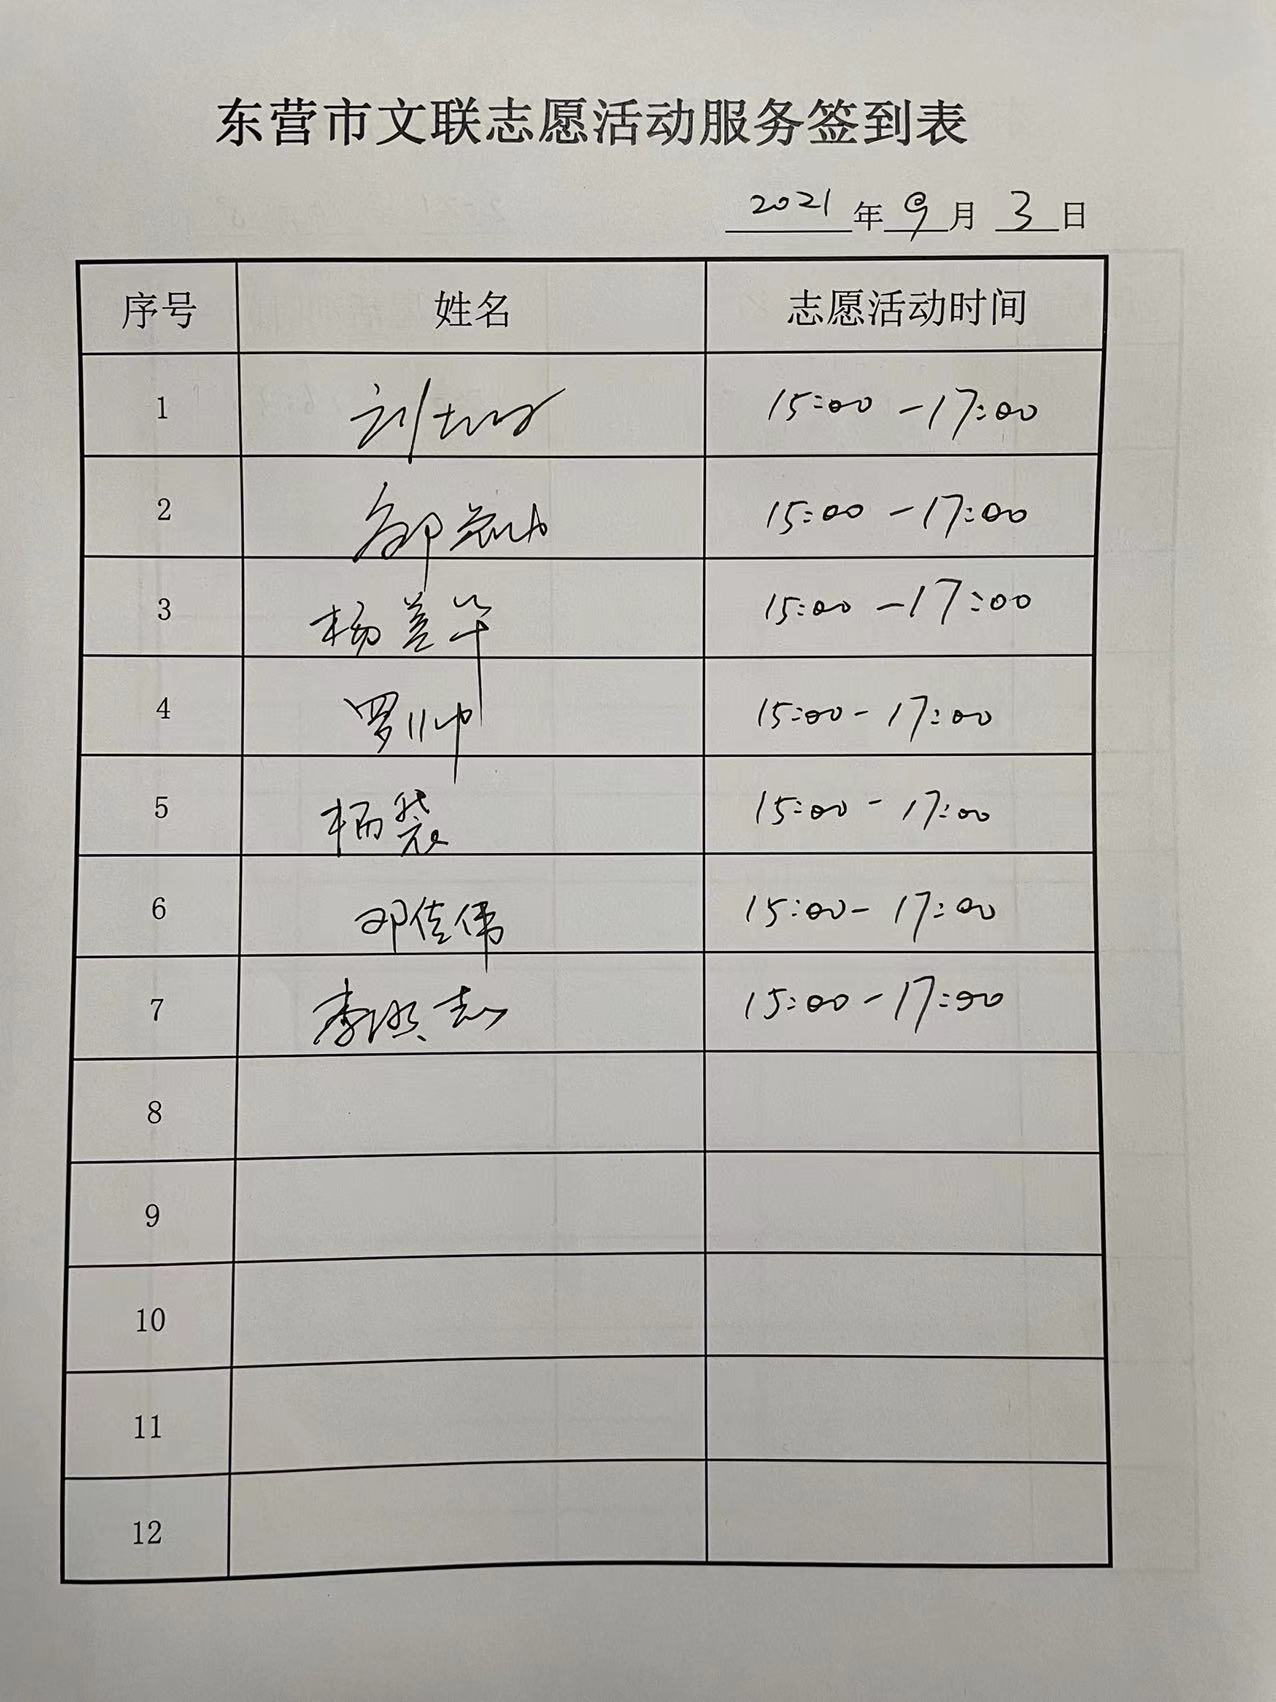 东营市文联志愿活动服务签到表
2021年9月3日
序号 姓名 志愿活动时间
1 刘 15:00-17:00
2 15:00-17:00
3 杨善华 15:00-17:00
4 罗帅 15:00-17:00
5 15:00-17:00
6 邓佳伟 15:00-17:00
7 李洪志 15:00-17:00
8
9
10
11
12